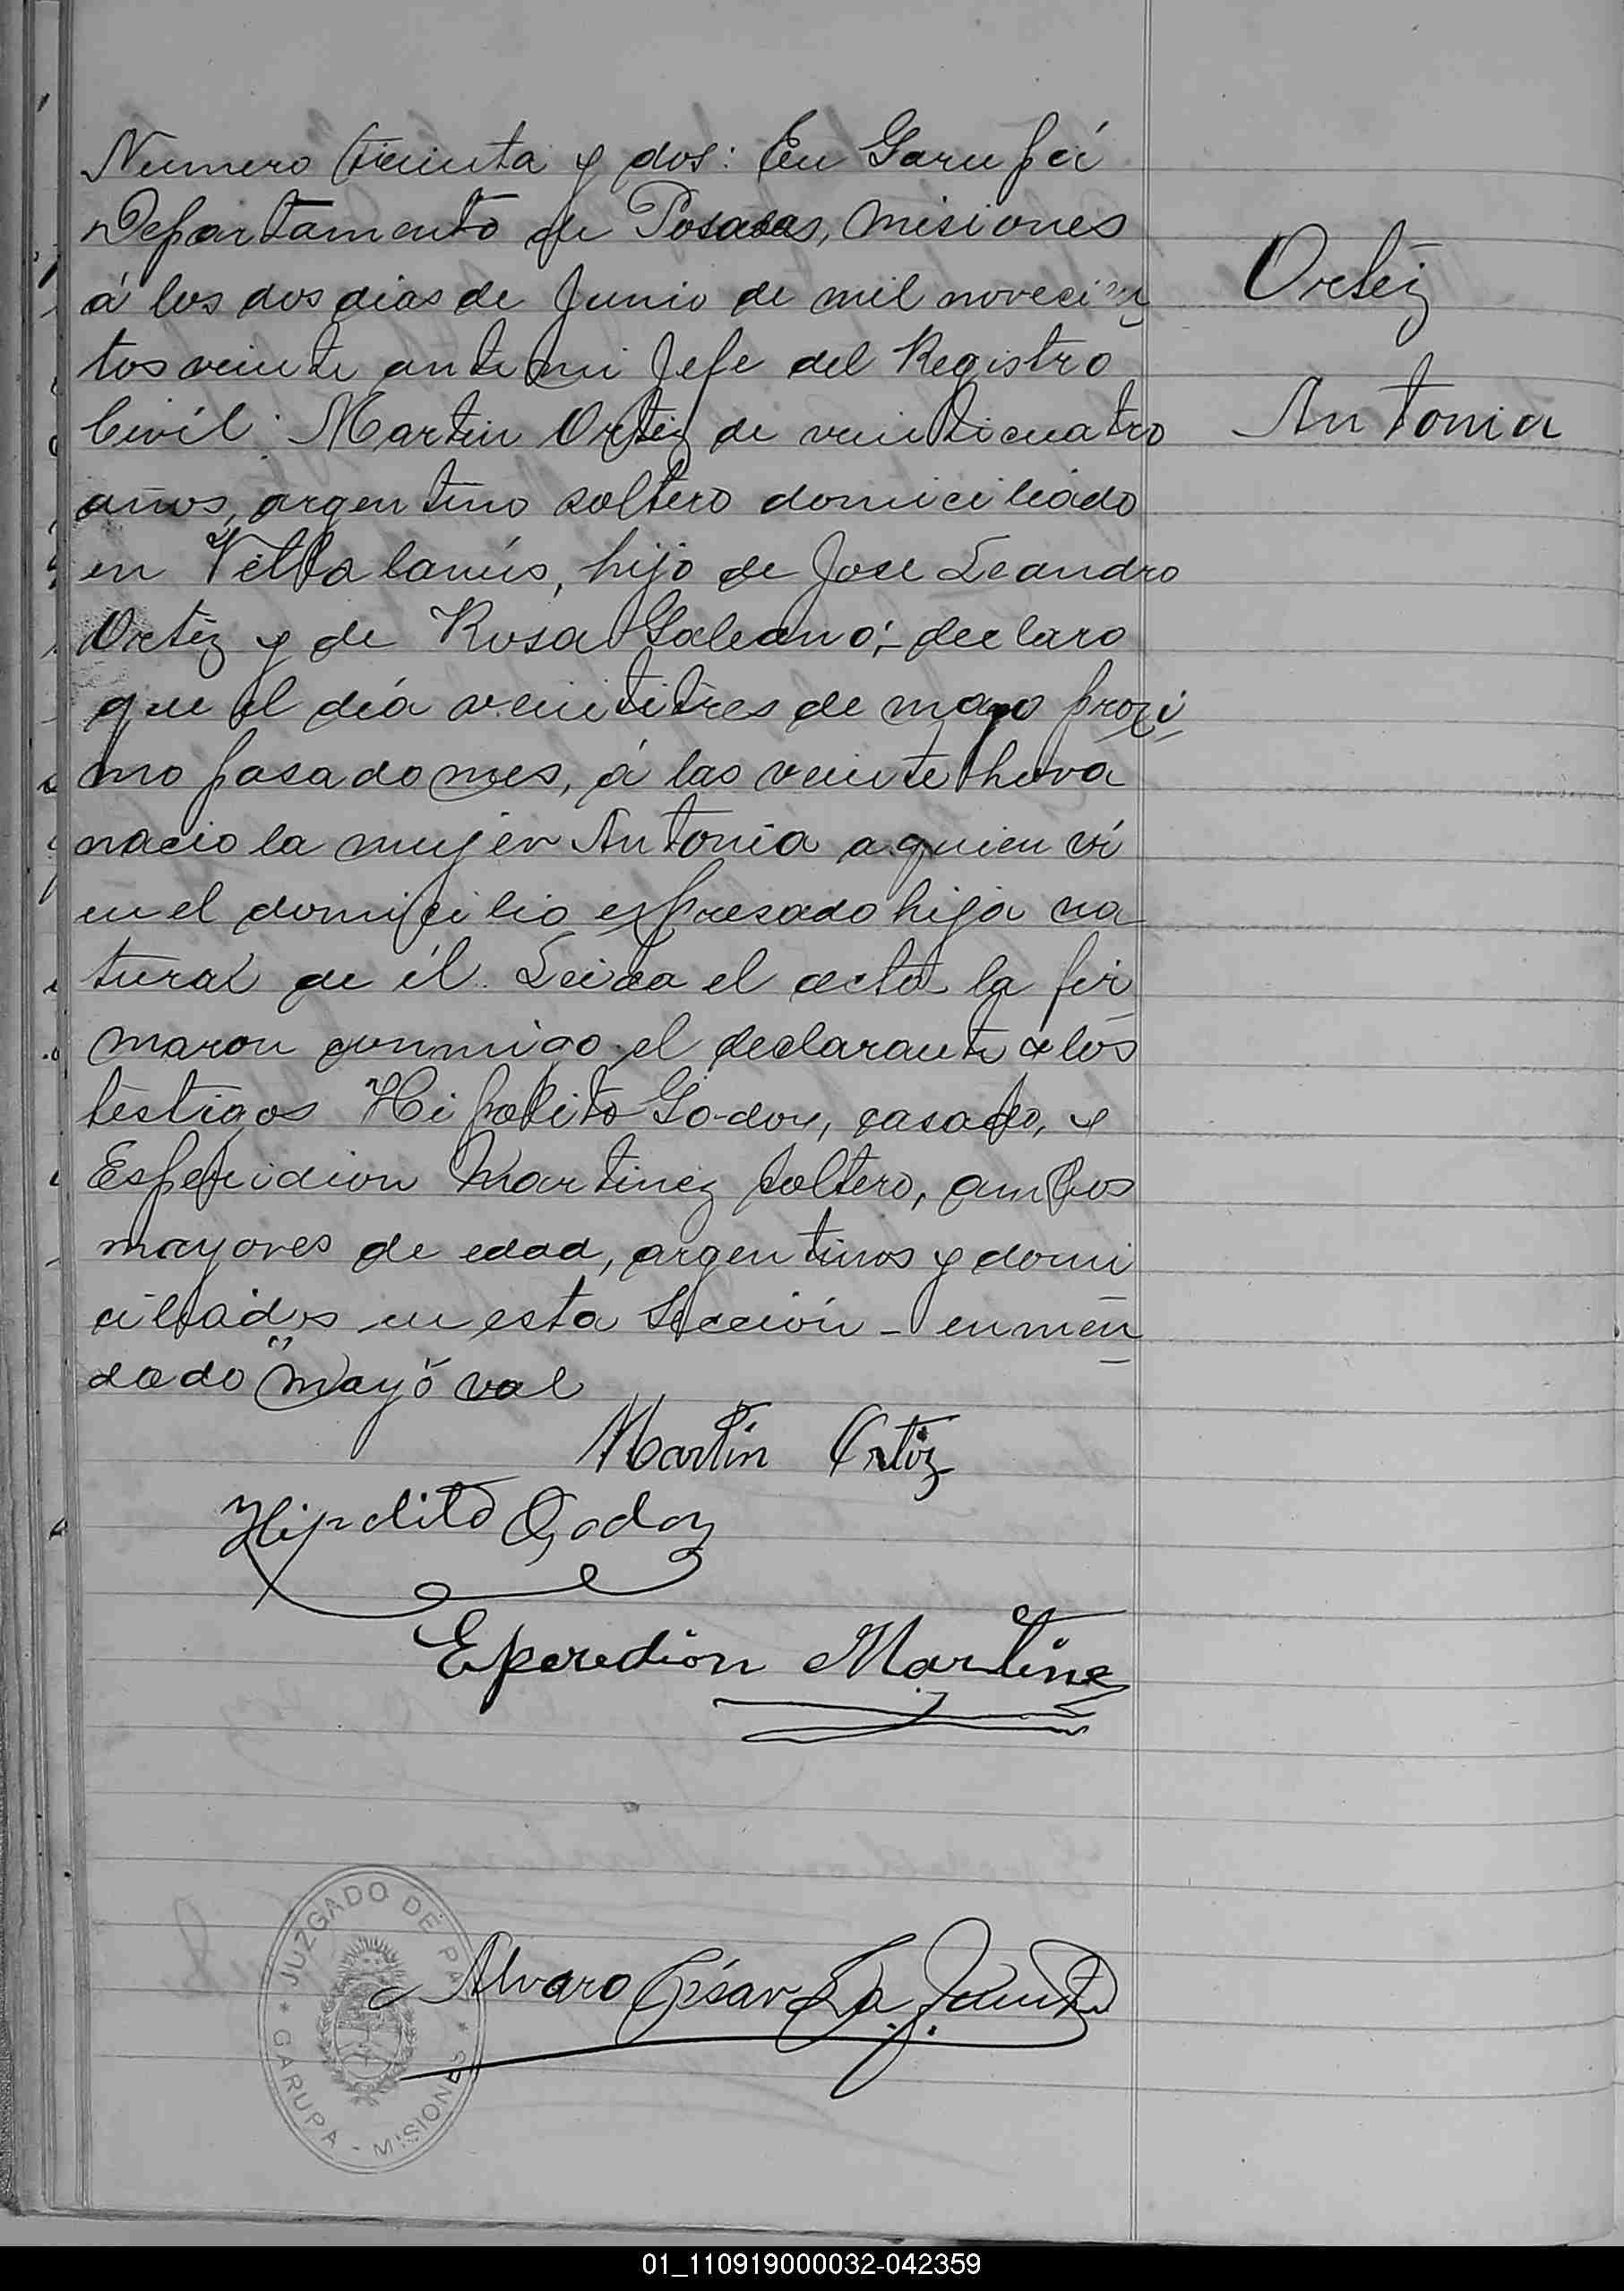 Numero treinta y dos: En Garupá
Departamento de Posadas, Misiones
á los dos dias de Junio de mil novecien
tos veinte ante mi Jefe del Registro
Civil: Martin Ortiz de veinticuatro
años, argentino soltero domiciliado
en Villa lanús, hijo de Jose Leandro
Ortiz y de Rosa Galeano; declaro
que el día veintitres de mayo proxi
mo pasado mes, á las veinte hora
nacio la mujer Antonia a quien vi
en el domicilio expresado hija na
tural de él. Leida el acta la fir
maron conmigo el declarante y los
testigos Hipolito Godoy, casado, y
Esperidion Martinez soltero, ambos
mayores de edad, argentinos y domi
ciliados en esta Sección - enmen
dado "mayo" val
Ortiz
Antonia
Martin Ortiz
Hipolito Godoy
Eperedion Martinez
Alvaro César La
JUZGADO DE PAZ
GARUPA - MISIONES
01_110919000032-042359